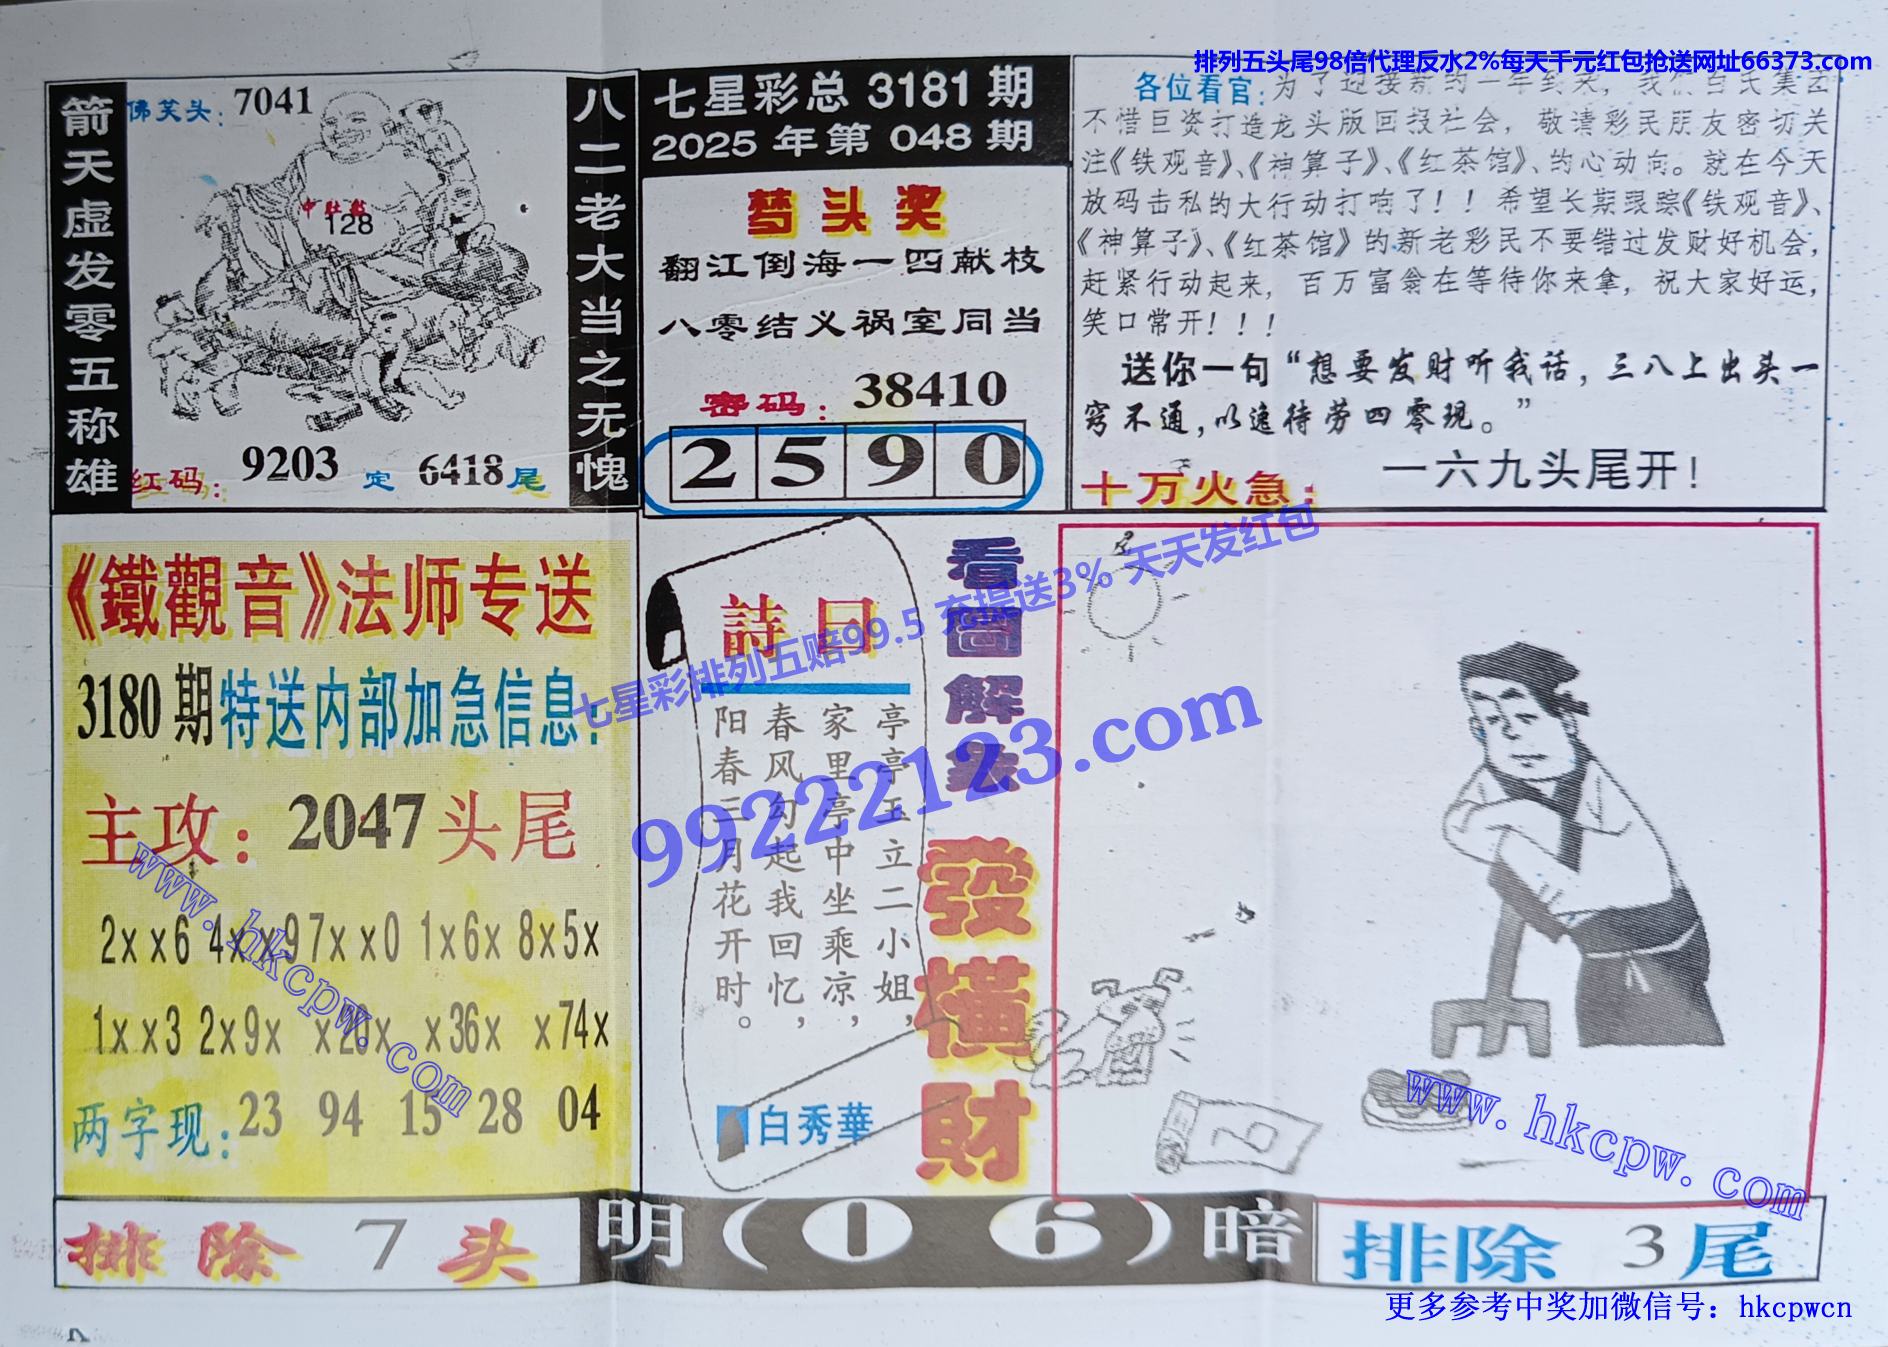 排列五头尾98倍代理反水2%每天千元红包抢送网址66373.com
箭天虚发零五称雄
佛笑头：7041
128
红码：9203 定 6418尾
八二老大当之无愧
七星彩总 3181 期
2025 年第 048 期
梦头奖
翻江倒海一四献枝
八零结义祸室同当
密码：38410
2 5 9 0
各位看官：为了迎接新的一年到来，我们白氏集团
不惜巨资打造龙头版回报社会，敬请彩民朋友密切关
注《铁观音》、《神算子》、《红茶馆》、的心动向。就在今天
放码击私的大行动打响了！！希望长期跟踪《铁观音》、
《神算子》、《红茶馆》的新老彩民不要错过发财好机会，
赶紧行动起来，百万富翁在等待你来拿，祝大家好运，
笑口常开！！！
送你一句“想要发财听我话，三八上出头一
窍不通，以逸待劳四零现。”
十万火急：一六九头尾开！
《鐵觀音》法师专送
3180 期特送内部加急信息：
主攻：2047头尾
2xx6 4xx9 7xx0 1x6x 8x5x
1xx3 2x9x x20x x36x x74x
两字现：23 94 15 28 04
詩曰
亭亭玉立二小姐，
家里亭中坐乘凉，
春风勾起我回忆，
阳春三月花开时。
白秀華
看圖解
發橫財
七星彩排列五赔99.5 充提送3% 天天发红包
99222123.com
www.hkcpw.com
www.hkcpw.com
排除 7 头
明（0 6）暗
排除 3 尾
更多参考中奖加微信号：hkcpwcn